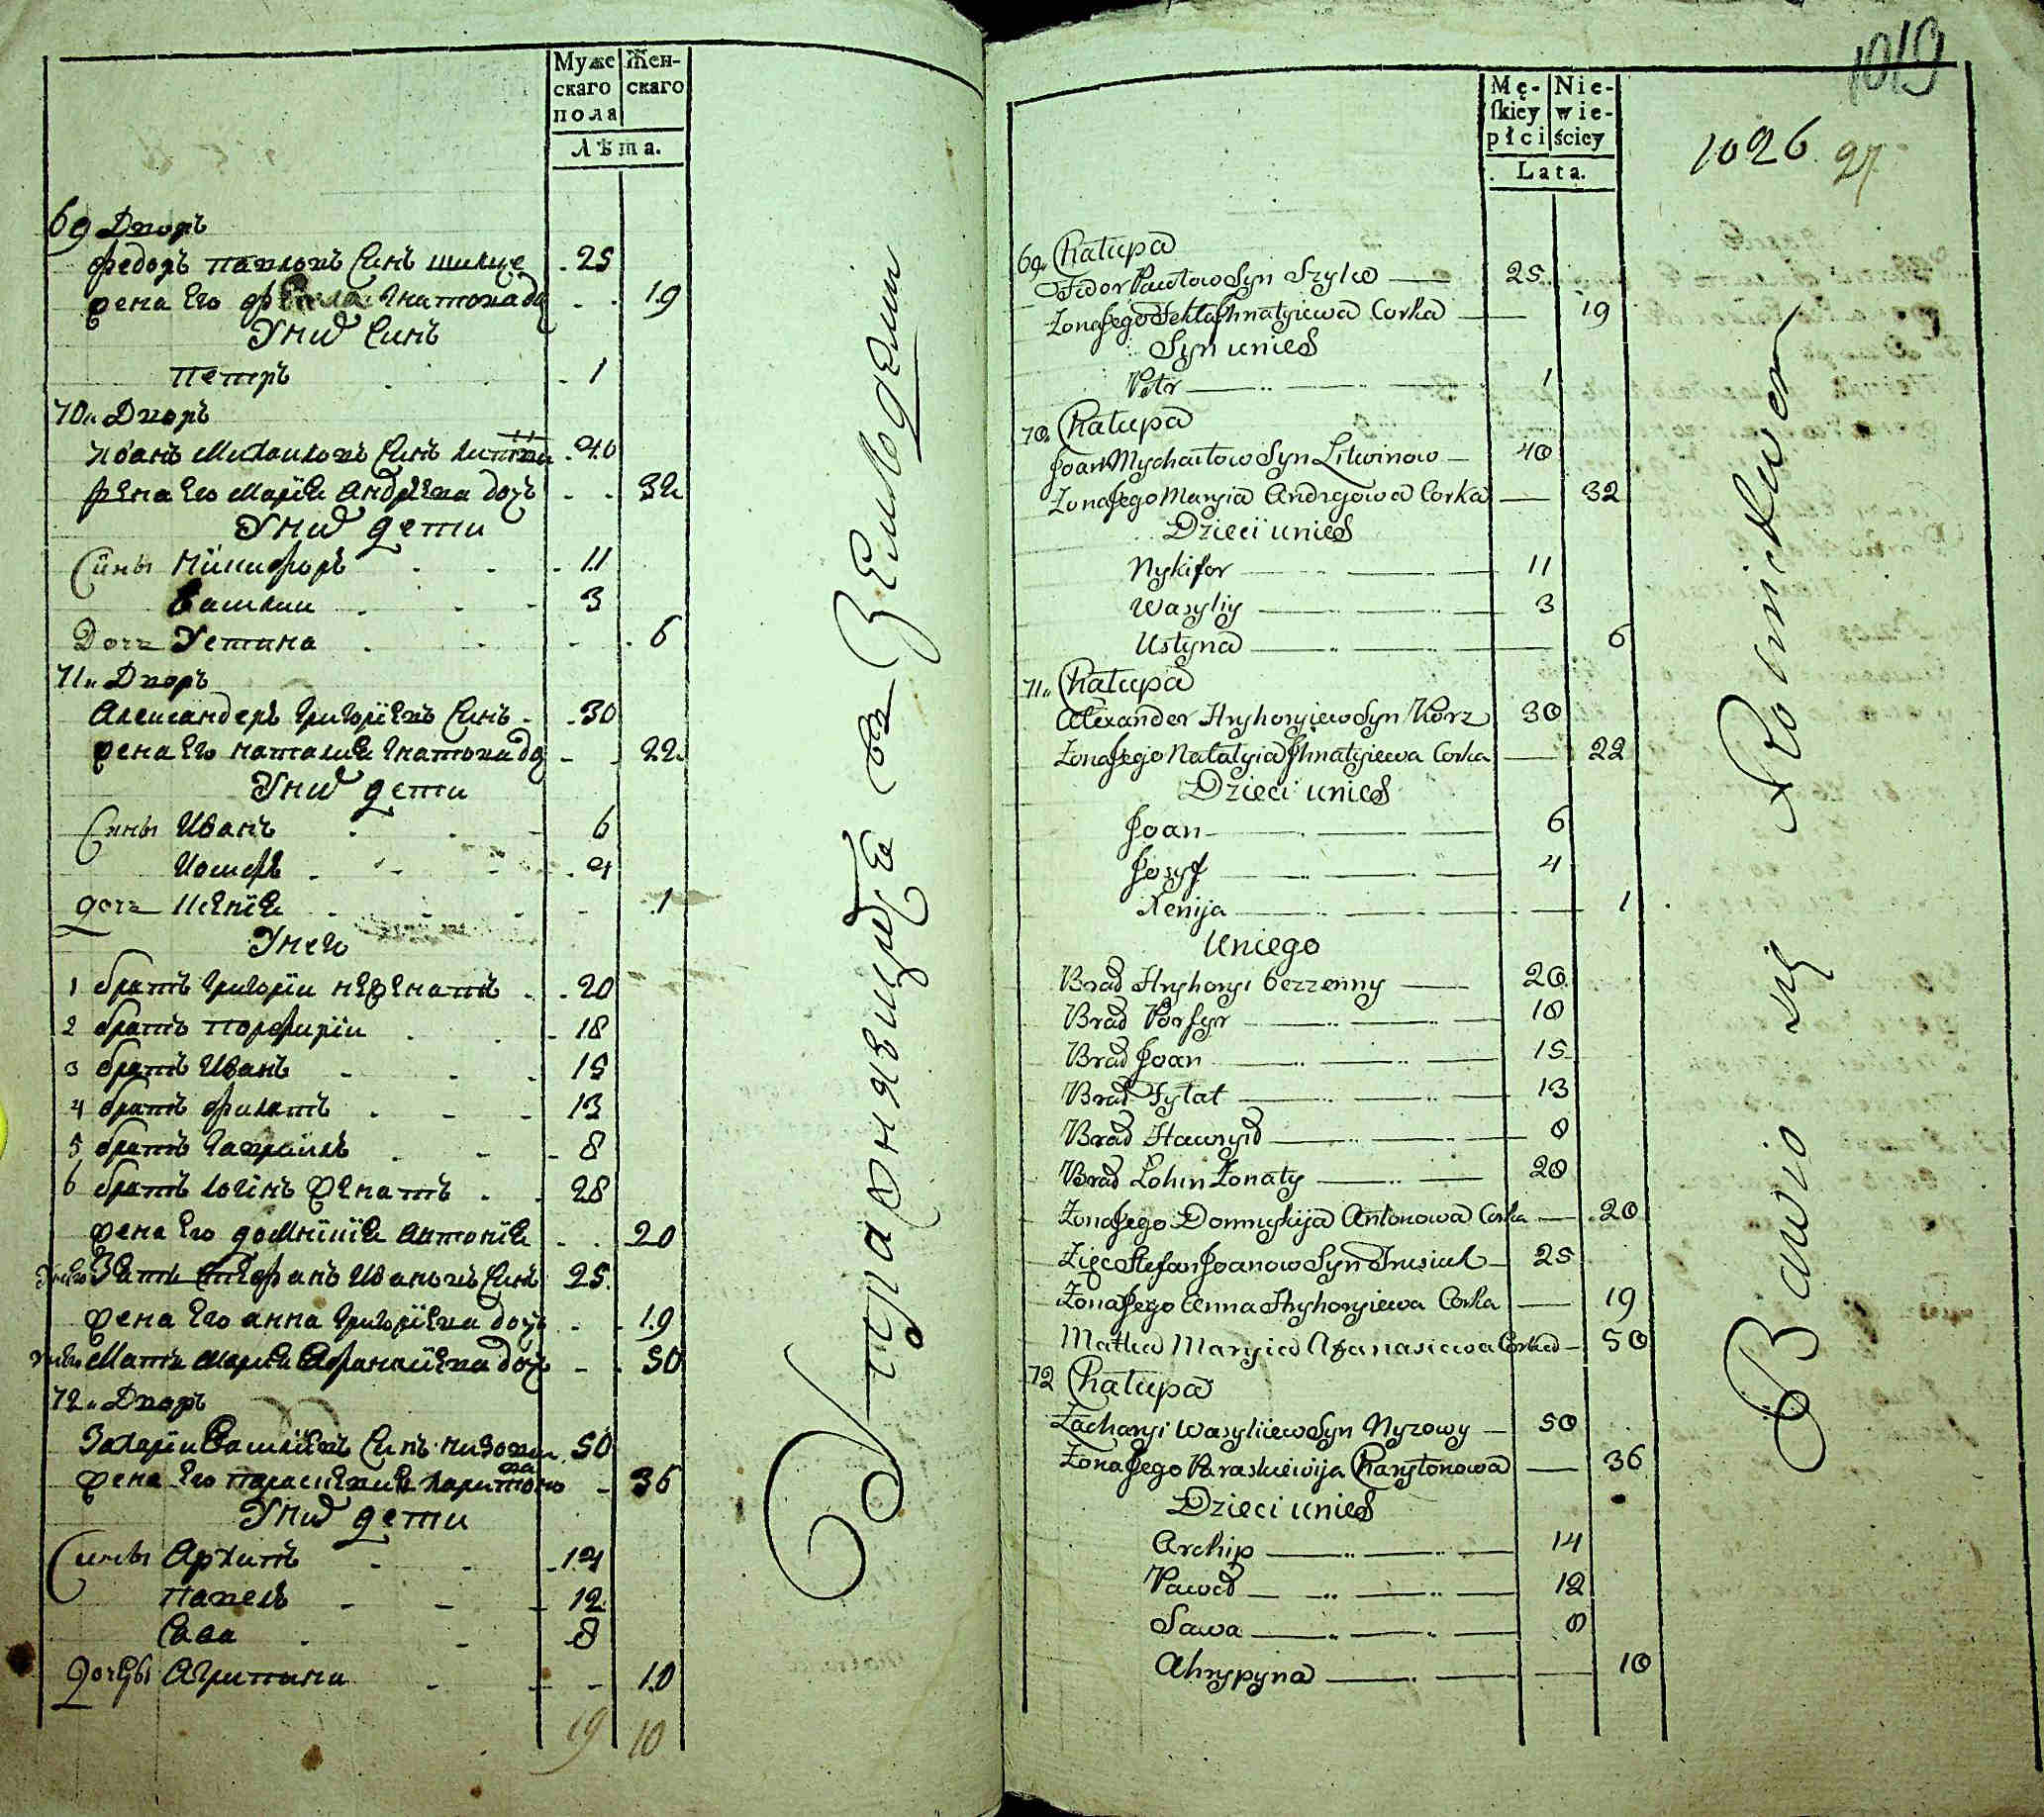 Муже
скаго
пола
Жен-
скаго
Лѣта.
69 Дворъ
Федоръ Павловъ Синъ Шилце 25
Жена Его Фекла Игнатова до 19
У них Синъ
Петръ 1
70 Дворъ
Иванъ Михаиловъ Синъ 40
Жена Его Мария Андреева дочь 32
У них дети
Сины Никифоръ 11
Василии 3
Дочь Устина 6
71 Дворъ
Александеръ Григориевъ Синъ 30
Жена Его Наталия Игнатова до 22
У них дети
Сины Иванъ 6
Иосифъ 4
дочь Ксения 1
У него
1 братъ Григории нежонатъ 20
2 братъ Порфирии 18
3 братъ Иванъ 15
4 братъ Филатъ 13
5 братъ Гавриилъ 8
6 братъ Логинъ женатъ 28
Жена Его Домникия Антония 20
Зять Стефанъ Ивановъ Синъ 25
Жена Его Анна Григориева дочь 19
Мать Мария Афанасиева дочь 50
72 Дворъ
Захарии Василиевъ Синъ 50
Жена Его Параскевия Харитоно
ва 36
У них дети
Сины Архипъ 14
Павелъ 12
Сава 8
дочеры Агрипина 10
19 10
Упражняется въ Землед
1019
1026 27
Mę-
ſkiey
płci
Nie-
wie-
ściey
Lata.
69. Chałupa
Fedor Pawłow Syn Szylce 25
Zona Jego Tekla Ihnatyiewa Corka 19
Syn unich
Petr 1
70. Chałupa
Joan Mychaiłow Syn Litwinow 40
Zona Jego Marysia Andrejowa Corka 32
Dzieci unich
Nykifor 11
Wasyliy 3
Ustyna 6
71. Chałupa
Alexander Hryhoryiew Syn Korz 30
Zona Jego Natalyia Ihnatyiewa Corka 22
Dzieci unich
Joan 6
Jozyf 4
Xenija 1
Uniego
Brad Hryhoryi bezzenny 20
Brad Porfyr 18
Brad Joan 15
Brad Fylat 13
Brad Hawryło 8
Brad Lohin Zonaty 28
Zona Jego Domnykija Antonowa Corka 20
Zięc Stefan Joanow Syn 25
Zona Jego Anna Hryhoryiewa Corka 19
Matka Marysia Afanasiewa Corka 50
72 Chałupa
Zacharyi Wasyliiew Syn Nyzowy 50
Zona Jego Paraskiewija Charytonowa 36
Dzieci unich
Archip 14
Paweł 12
Sawa 8
Ahrypyna 10
Bawio się Rolnictwem